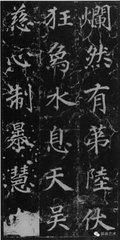 爛然有第陸伏
狂為水息天吳
慈心制暴慧